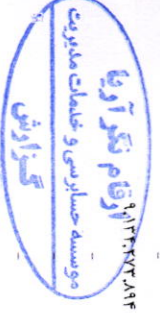 ارقام نگر آریا
موسسه حسابرسی و خدمات مدیریت
گزارش
۹,۱۴۴,۲۷۳,۸۹۴